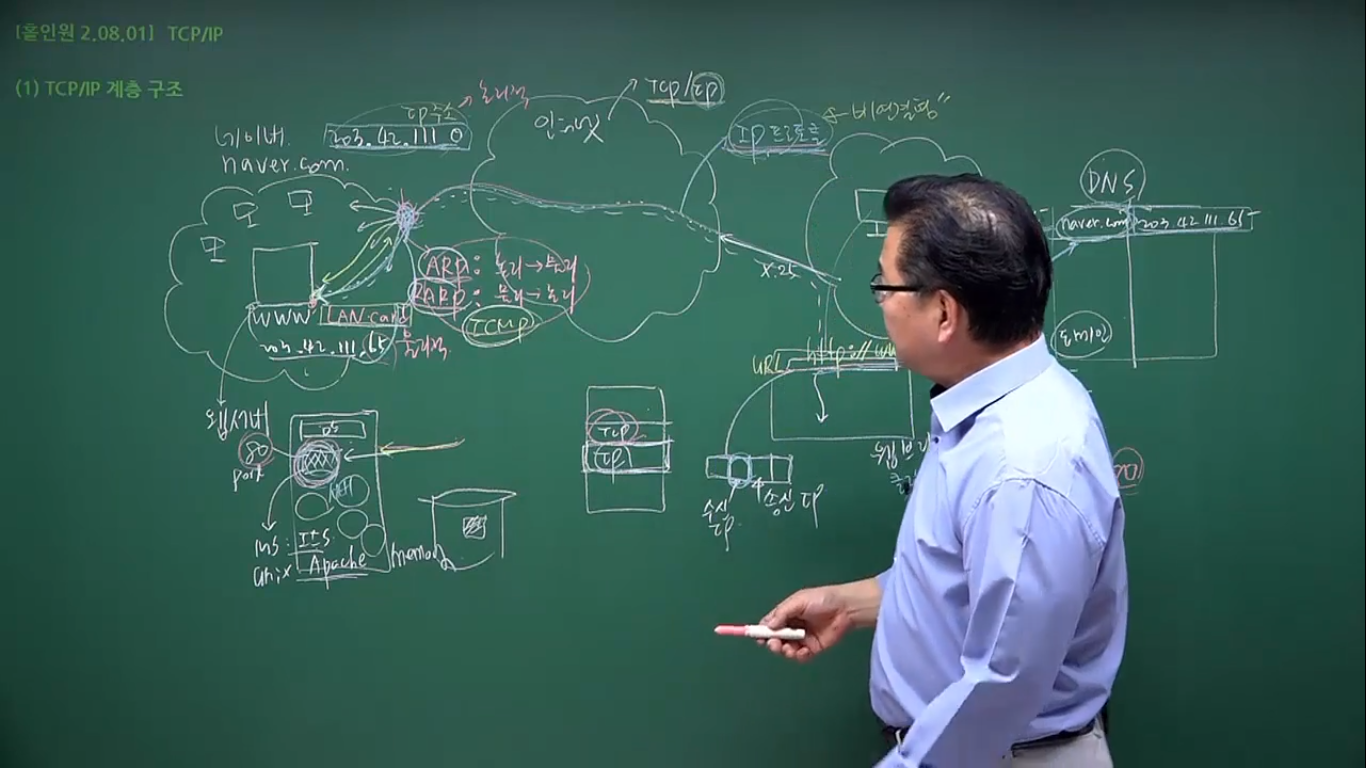 [홀인원 2.08.01] TCP/IP
(1) TCP/IP 계층 구조
네이버
naver.com.
IP주소 → 논리적
203.42.111.0
인터넷
TCP/IP
IP프로토콜
비연결형
DNS
naver.com 203.42.111.65
도메인
ARP: 논리→물리
RARP: 물리→논리
ICMP
X.25
WWW LAN card
203.42.111.65 물리적
URL http://ww
웹서버
80
port
OS
MS: IIS
Unix Apache
memory
TCP
IP
수신
IP
송신 IP